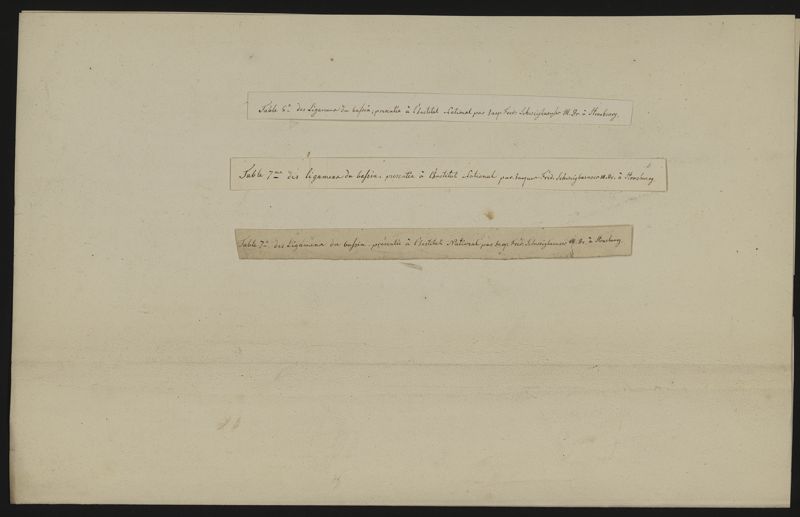 Table 6.e des Ligamens du bassin; presentée à l'Institut National par Jacq. Fréd. Schweighaeuser M. Dr. à Strasbourg.
Table 7.me des ligamens du bassin. presentée à l'Institut National par Jaques Fréd. Schweighaeuser M. Dr. à Strasbourg
Table 7.e des Ligamens du bassin. présentée à l'Institut National par Jacq. Fréd. Schweighaeuser M. Dr. à Strasbourg.